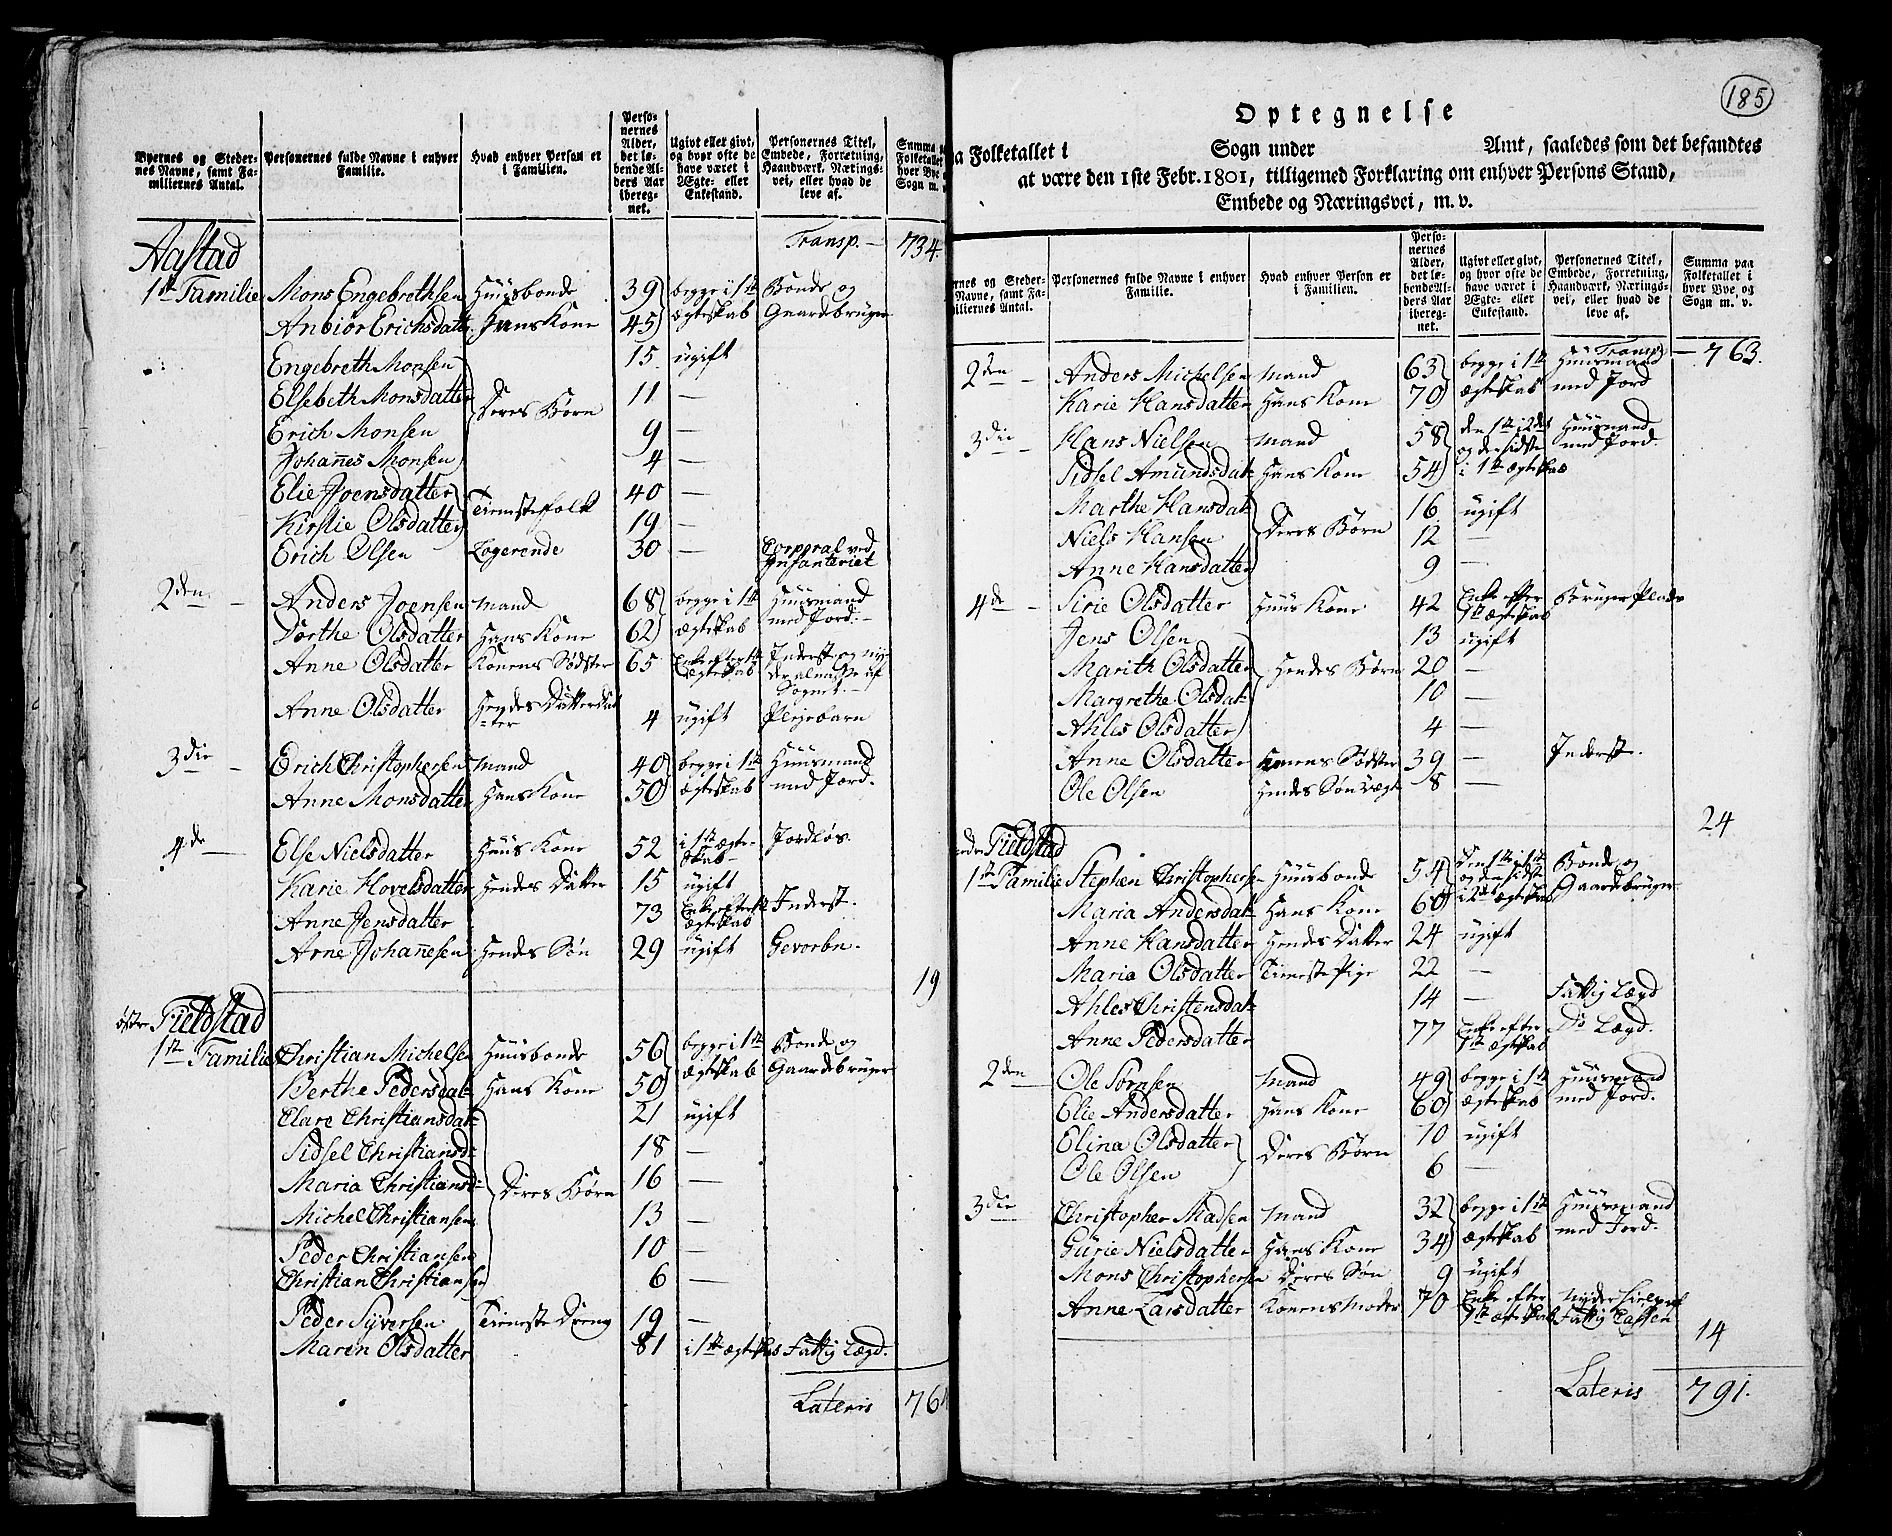 Byernes og Stedernes Navne, samt Familiernes Antal. | Personernes fulde Navne i enhver Familie. | Hvad enhver Person er i Familien. | Personernes Alder, det løbende Alders Aar iberegnet. | Ugivt eller givt, og hvor ofte de have været i Ægte- eller Enkestand. | Personernes Titel, Embede, Forretning, Haandværk, Næringsvei, eller hvad de leve af. | Summa Folketallet hver Bye Sogn m.
Transp. — 734.
Aastad
1ste Familie Mons Engebrethsen Huusbonde 39 begge i 1ste Bonde og
Anbior Erichsdatter Hans Kone 45 ægteskab Gaardbruger
Engebreth Monsen 15 ugift
Elsebeth Monsdatter Deres Børn 11 —
Erich Monsen 9 —
Johannes Monsen 4 —
Elie Joensdatter Tienestefolk 40 —
Kirstie Olsdatter 19 —
Erich Olsen Logerende 30 — Corporal ved Infanteriet
2den — Anders Joensen Mand 68 begge i 1ste Huusmand
Dorthe Olsdatter Hans Kone 62 ægteskab med Jord. —
Anne Olsdatter Konens Södster 65 Enke efter 1ste Ægteskab Inderst og nyder almisse af Sognet. —
Anne Olsdatter Hendes Datterdatter 4 ugift Plejebarn
3die — Erich Christophersen Mand 40 begge i 1ste Huusmand
Anne Monsdatter Hans Kone 50 ægteskab med Jord.
4de — Else Nielsdatter Huus Kone 52 i 1ste ægteskab — Jordløs.
Karie Hovelsdatter Hendes Datter 15 ugift
Anne Jensdatter 73 Enke efter 1ste ægteskab Inderst.
Arne Johannesen Hendes Søn 29 ugift Gevorbn.
19
østre Fieldstad
1ste Familie Christian Michelsen Huusbonde 56 begge i 1ste Bonde og
Berthe Pedersdat: Hans Kone 50 ægteskab Gaardebruger
Clare Christiansdat: 21 ugift
Sidsel Christiansd: 18 —
Maria Christiansd: Deres Børn 16 —
Michel Christiansen 13 —
Peder Christiansen 10 —
Christian Christiansen 6 —
Peder Syversen Tieneste Dreng 19 —
Maren Olsdatter 81 i 1ste ægteskab Fattig Lægd.
Lateris 76
185
Optegnelse
Folketallet i Sogn under Amt, saaledes som det befandtes
at være den 1ste Febr. 1801, tilligemed Forklaring om enhver Persons Stand,
Embede og Næringsvei, m. v.
Navne, samt Familiernes Antal. | Personernes fulde Navne i enhver Familie. | Hvad enhver Person er i Familien. | Personernes Alder, det løbende Alders Aar iberegnet. | Ugivt eller givt, og hvor ofte de have været i Ægte- eller Enkestand. | Personernes Titel, Embede, Forretning, Haandværk, Næringsvei, eller hvad de leve af. | Summa paa Folketallet i hver Bye og Sogn m. v.
Transp. — 763.
2den — Anders Michelsen Mand 63 begge i 1ste Huusmand
Karie Hansdatter Hans Kone 70 ægteskab med Jord
3die — Hans Nielsen Mand 58 den 1ste i 2det Huusmand
Sidsel Amundsdat: Hans Kone 54 og den sidste i 1ste ægteskab med Jord.
Marthe Hansdat: 16 ugift
Niels Hansen Deres Børn 12 —
Anne Hansdatter 9 —
4de — Sirie Olsdatter Huus Kone 42 Enke efter 1ste Ægteskab Bruger Plads
Jens Olsen 13 ugift
Marith Olsdatter Hendes Børn 20 —
Margrethe Olsdat: 10 —
Ahles Olsdatter 4 —
Anne Olsdatter Konens Södster 39 — Inderst.
Ole Olsen Hendes Søn uægte 8 —
24
nedre Fieldstad
1ste Familie Stephen Christophersen Huusbonde 54 Den 1ste i 1ste Bonde og
Maria Andersdat: Hans Kone 60 og den sidste i 2det ægteskab Gaardebruger
Anne Hansdatter Hendes Datter 24 ugift
Maria Olsdatter Tieneste Pige 22 —
Ahles Christensdat: 14 — Fattig Lægd
Anne Pedersdatter 77 Enke efter 1ste ægteskab Do Lægd.
2den — Ole Sørnsen Mand 49 begge i 1ste Huusmand
Elie Andersdatter Hans Kone 60 ægteskab med Jord.
Elina Olsdatter Deres Børn 10 ugift
Ole Olsen 6 —
3die — Christopher Madsen Mand 32 begge i 1ste Huusmand
Gurie Nielsdatter Hans Kone 34 ægteskab med Jord.
Mons Christophersen Deres Søn 9 ugift
Anne Larsdatter Konens Moder 70 Enke efter 1ste ægteskab Nyder Fattig Cassen
14
Lateris 791.